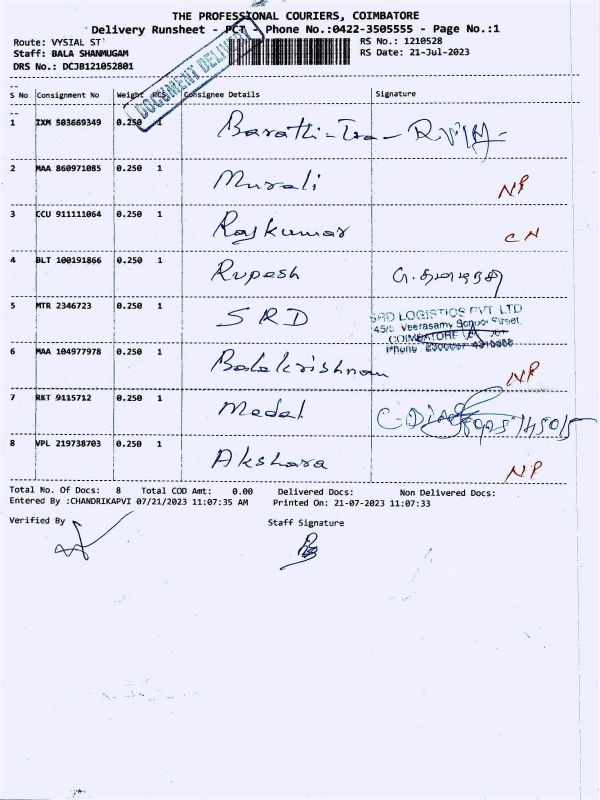 THE PROFESSIONAL COURIERS, COIMBATORE
Delivery Runsheet - PCT Phone No.:0422-3505555 - Page No.:1
Route: VYSIAL ST RS No.: 1210528
Staff: BALA SHANMUGAM RS Date: 21-Jul-2023
DRS No.: DCJB121052801
DOCUMENT DELIVERY
S No Consignment No Weight PCS Consignee Details Signature
1 IXM 503669349 0.250 1
2 MAA 860971085 0.250 1 Murali NP
3 CCU 911111064 0.250 1 Rajkumar CN
4 BLT 100191866 0.250 1 Rupesh
5 MTR 2346723 0.250 1 SRD
SRD LOGISTICS PVT LTD
45/5 Veerasamy Street,
COIMBATORE
Phone
6 MAA 104977978 0.250 1 Balakrishnan NP
7 RKT 9115712 0.250 1 Medal
8 VPL 219738703 0.250 1 Akshara NP
Total No. Of Docs: 8 Total COD Amt: 0.00 Delivered Docs: Non Delivered Docs:
Entered By :CHANDRIKAPVI 07/21/2023 11:07:35 AM Printed On: 21-07-2023 11:07:33
Verified By Staff Signature